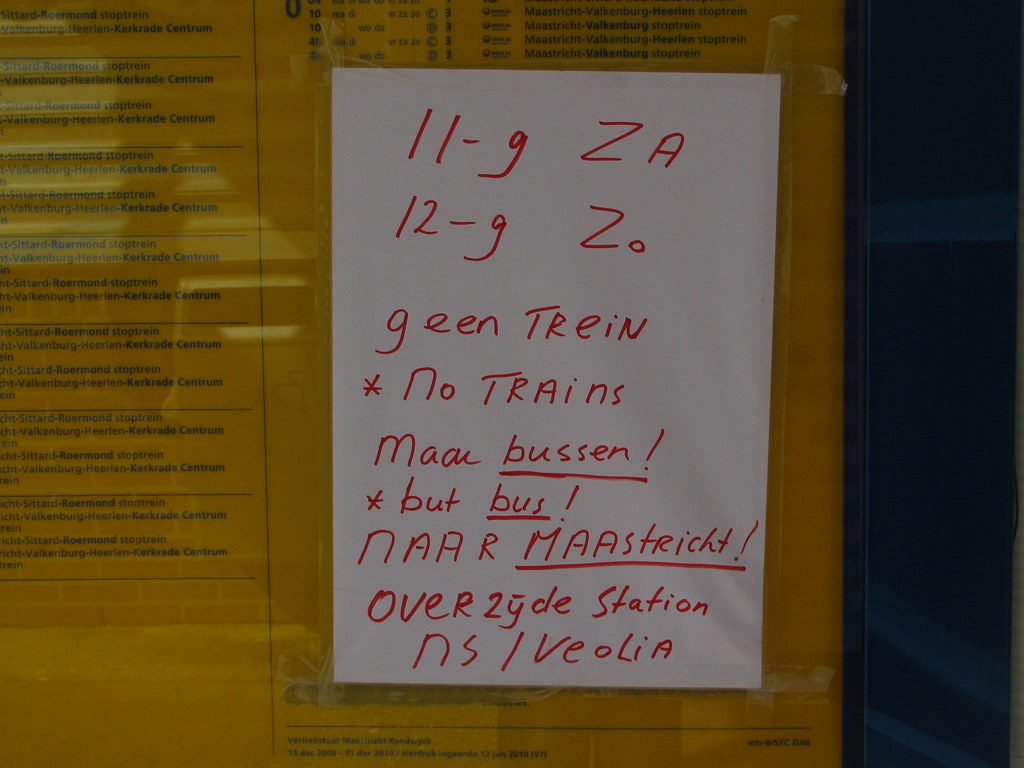 11-9 ZA
12-9 Zo
geen TREiN
* No TRAins
Maar bussen!
* but bus!
NAAR MAAStricht!
OVERzijde Station
NS / VeoLiA
Maastricht-Valkenburg-Heerlen stoptrein
Maastricht-Valkenburg stoptrein
Maastricht-Valkenburg-Heerlen stoptrein
Maastricht-Valkenburg stoptrein
-Valkenburg-Heerlen-Kerkrade Centrum
-Sittard-Roermond stoptrein
-Valkenburg-Heerlen-Kerkrade Centrum
-Sittard-Roermond stoptrein
-Valkenburg-Heerlen-Kerkrade Centrum
-Sittard-Roermond stoptrein
-Valkenburg-Heerlen-Kerkrade Centrum
-Sittard-Roermond stoptrein
-Valkenburg-Heerlen-Kerkrade Centrum
ht-Sittard-Roermond stoptrein
ht-Valkenburg-Heerlen-Kerkrade Centrum
ein
cht-Sittard-Roermond stoptrein
cht-Valkenburg-Heerlen-Kerkrade Centrum
ein
cht-Sittard-Roermond stoptrein
cht-Valkenburg-Heerlen-Kerkrade Centrum
ein
cht-Sittard-Roermond stoptrein
cht-Valkenburg-Heerlen-Kerkrade Centrum
rein
cht-Sittard-Roermond stoptrein
icht-Valkenburg-Heerlen-Kerkrade Centrum
rein
icht-Sittard-Roermond stoptrein
icht-Valkenburg-Heerlen-Kerkrade Centrum
rein
richt-Sittard-Roermond stoptrein
richt-Valkenburg-Heerlen-Kerkrade Centrum
trein
richt-Sittard-Roermond stoptrein
richt-Valkenburg-Heerlen-Kerkrade Centrum
trein
Vertrekstaat Maastricht Randwyck
13 dec 2009 - 11 dec 2010 / Herdruk ingaande 13 jun 2010 (97)
mtr-0/STC Zuid